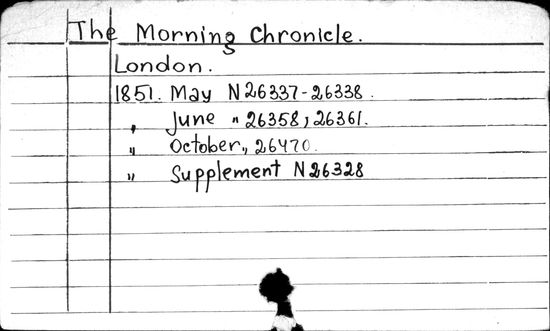 The Morning Chronicle.
London.
1851. May N 26337-26338.
„ June „ 26358, 26361.
„ October „ 26470.
„ Supplement N 26328